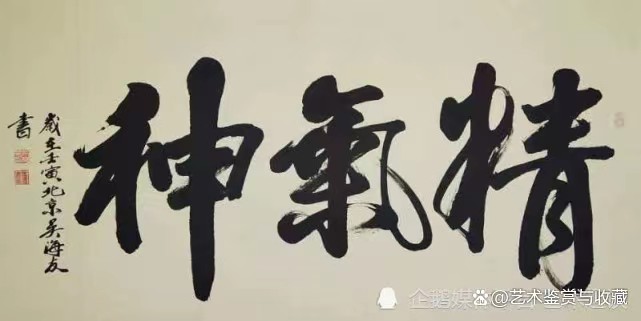 精氣神
歲在壬寅北京吴海友
書
企鹅媒
@艺术鉴赏与收藏